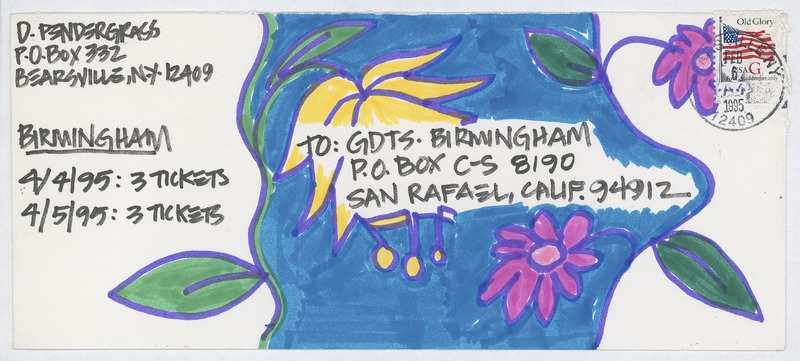 D. PENDERGRASS
P.O. BOX 332
BEARSVILLE, N.Y. 12409
BIRMINGHAM
4/4/95: 3 TICKETS
4/5/95: 3 TICKETS
TO: GDTS. BIRMINGHAM
P.O. BOX C-S 8190
SAN RAFAEL, CALIF. 94912
Old Glory
USA G
FEB
6
1995
12409